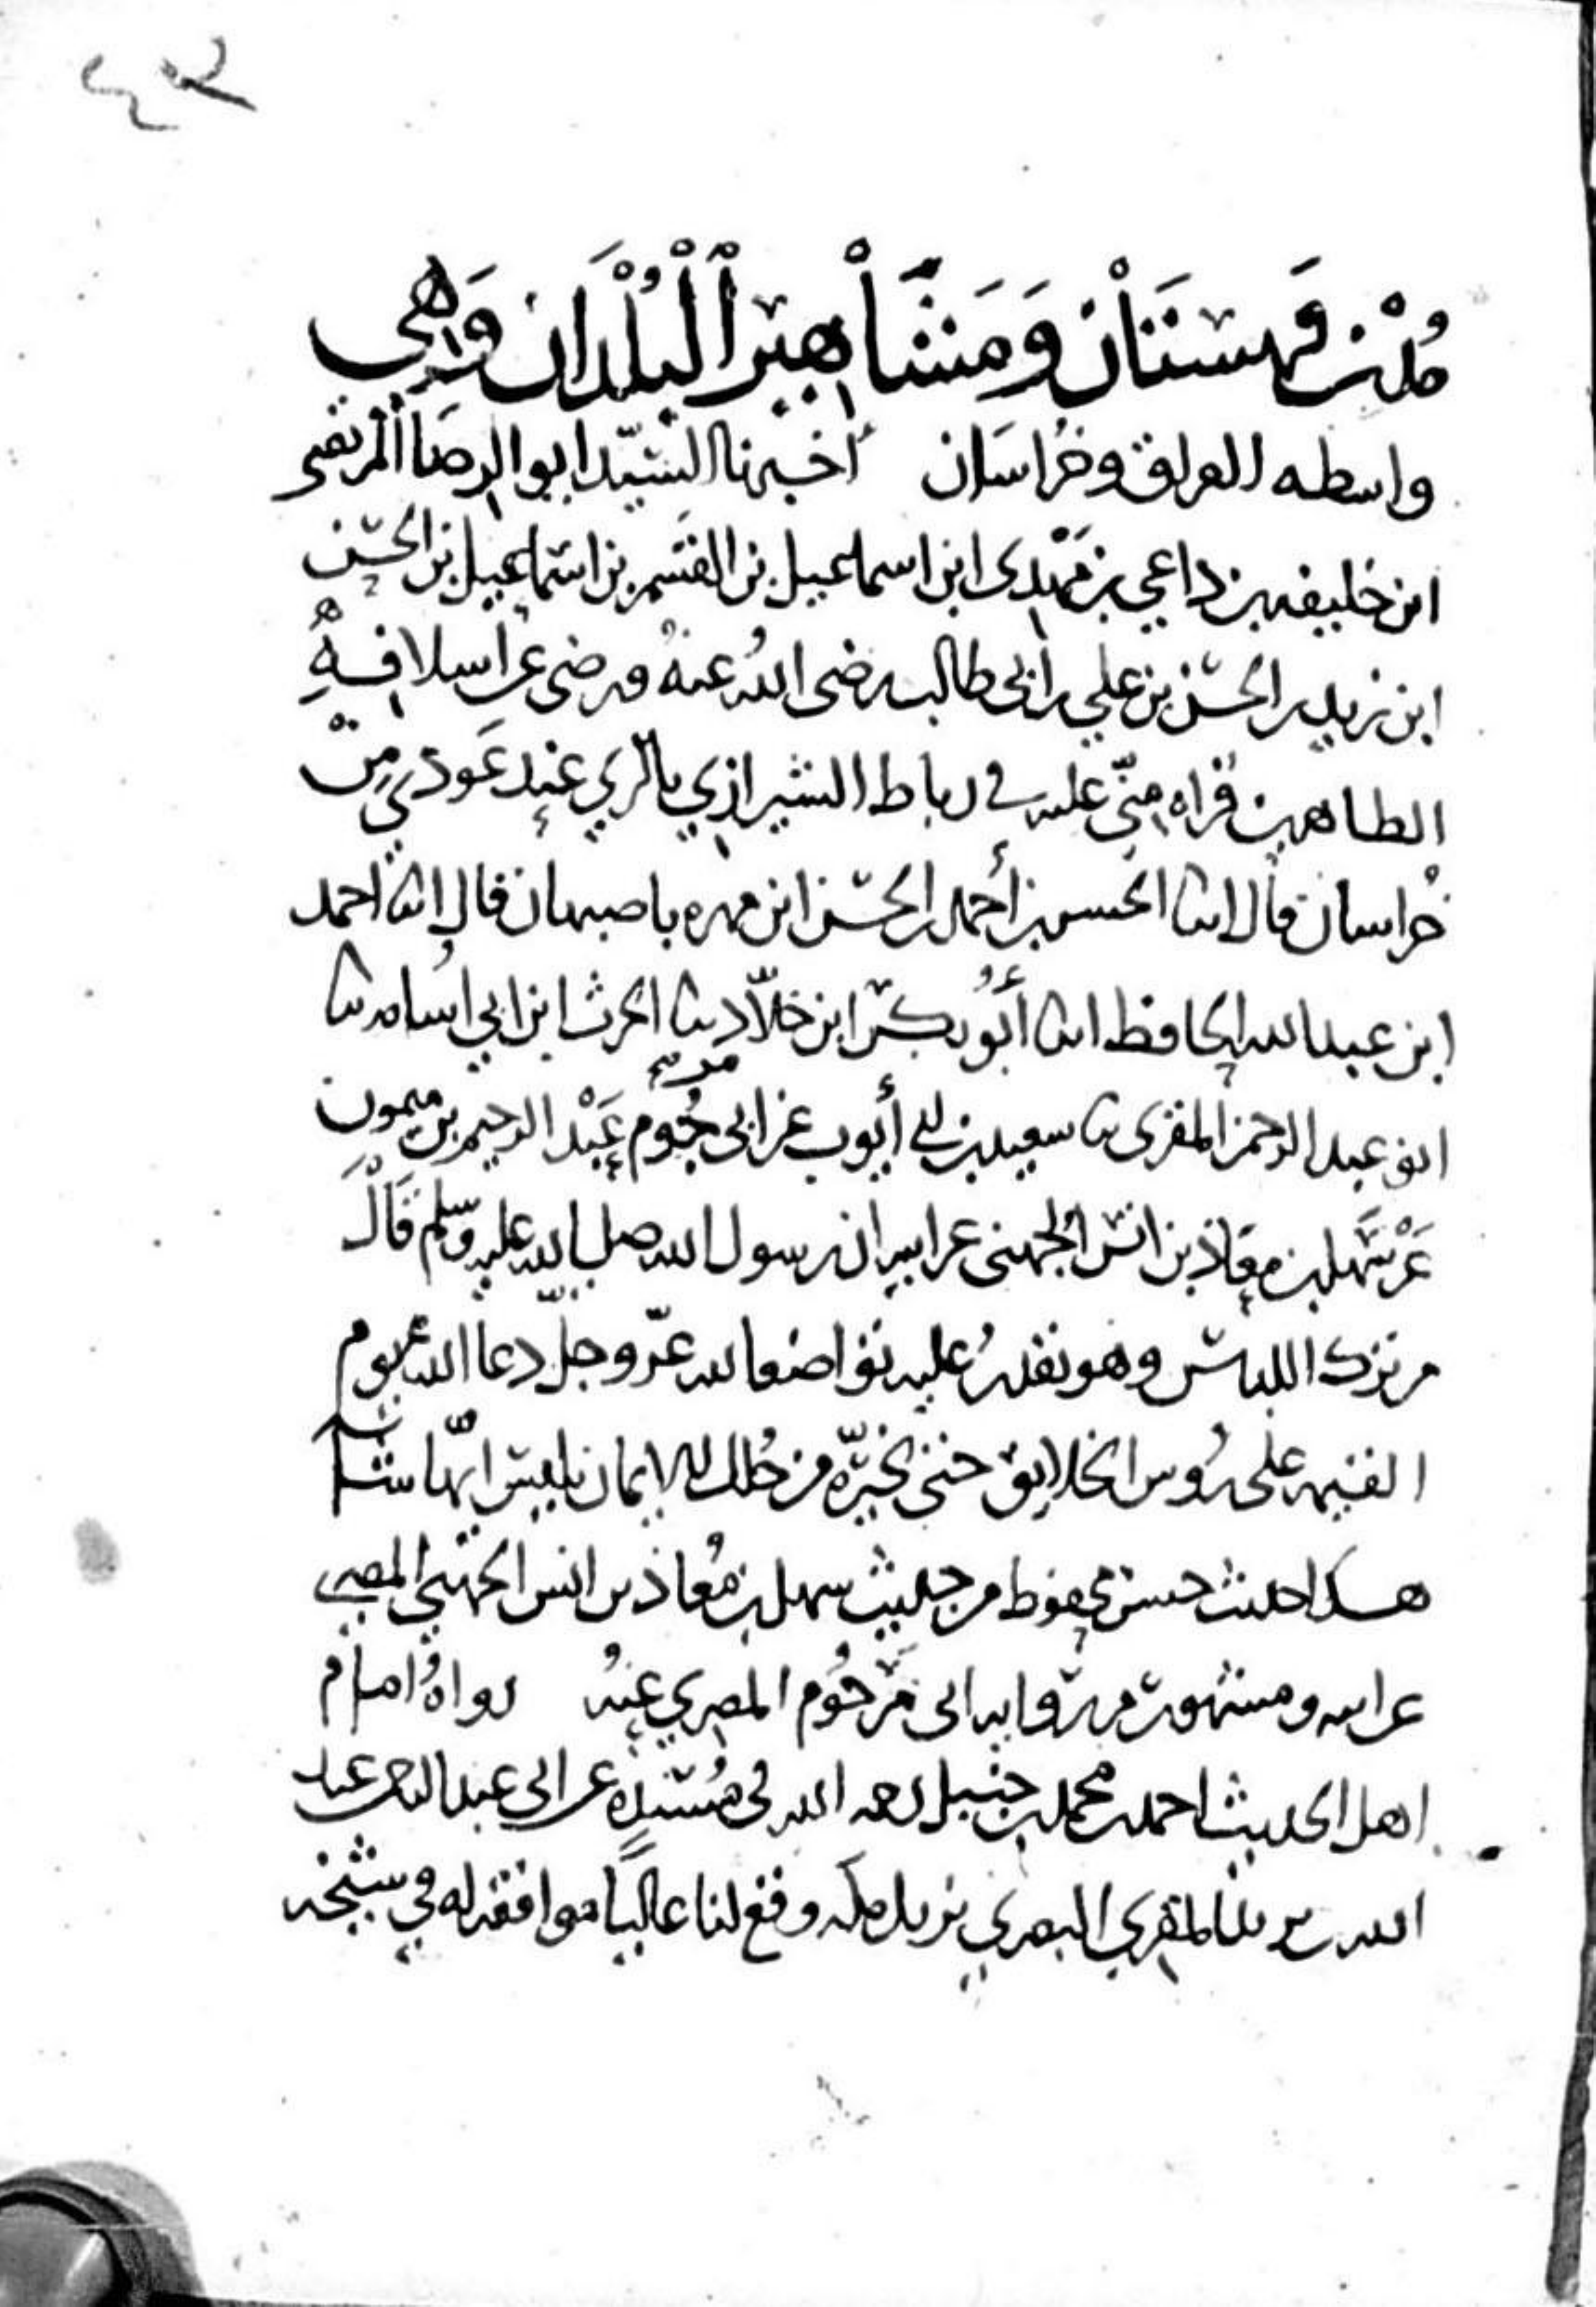 مُدْن قهسْتَان وَمَشَاهِير الْبُلْدَان وَهِي
واسطه العراق وخراسَان أخبرنا السّيّد ابو الرضا المرتضى
ابن خليفه بن داعي بن مَهْدي ابن اسماعيل بن القسم بن اسماعيل بن الحسن
ابن زيد بن الحسن بن علي بن ابي طالب رضى اللهُ عنهُ ورضى عن اسلافِهِ
الطاهرين قراه مِنّي عليه في رباط الشيرازي بالري عند عَودي من
خُراسان قال انا الحسن بن أحمد بن الحسن ابن مهره باصبهان قال انا احمد
ابن عبد الله الحافظ انا أبُو بكر ابن خلاّد نا الحرث ابن ابي اسُامه نا
ابو عبد الرحمن المقرى نا سعيد بن ابي أيوب عن ابي مرحُوم عَبْد الرحيم بن ميمون
عَنْ سَهل بن معَاذ بن انس الجهنى عن ابيه ان رسول الله صلى الله عليه وسَلم قَالَ
من ترك اللباس وهو يقدرُ عليه تواضعا لله عزّ وجلّ دعا الله يوم
القيمه على رُوس الخلايق حتى يخيّره من حُلل الايمان يلبس ايّها شَا
هذا حديث حسن محفوظ من حديث سهل بن مُعاذ بن انس الجهني المصرى
عن ابيه ومشهور من روايه ابى مَرحُوم المصري عنهُ رواهُ امام
اهل الحديث احمد بن محمد بن حنبل رحمه الله في مُسْنَدِه عن ابي عبد الرحمن عبد
الله بن يزيد المقري البصري نزيل مكه وقع لنا عاليًا موافقه له في شيخه